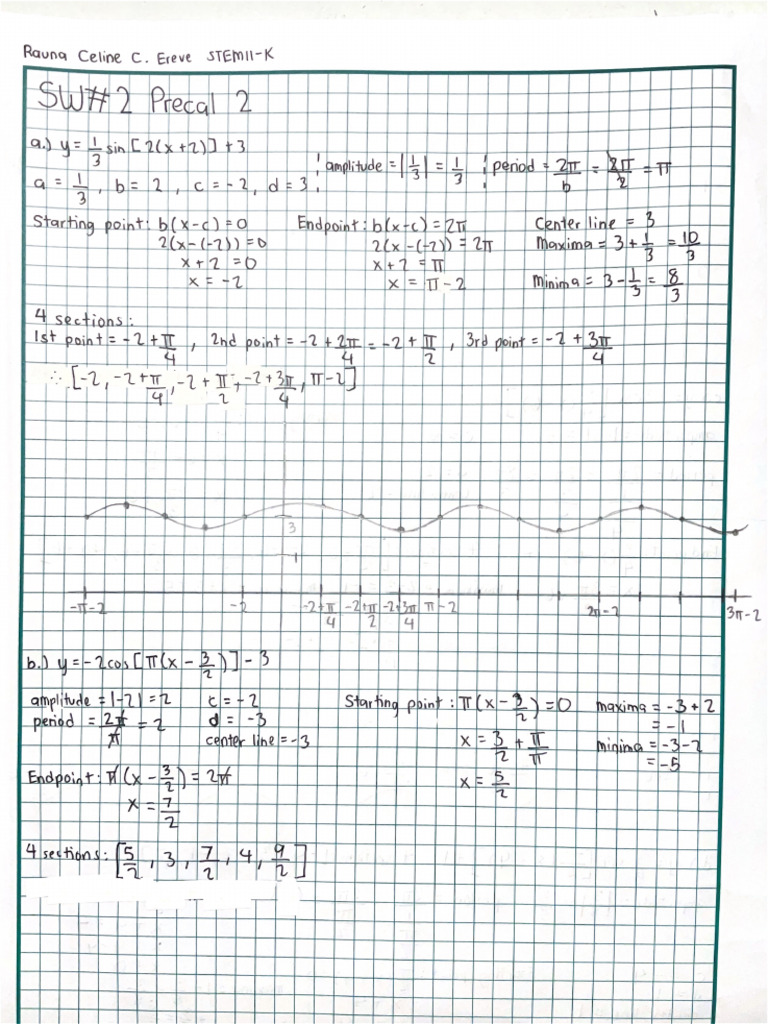 Rauna Celine C. Ereve STEM11-K
SW#2 Precal 2
a.) y = 1/3 sin [2(x+2)] + 3
a = 1/3, b = 2, c = -2, d = 3
amplitude = |1/3| = 1/3
period = 2π/b = 2π/2 = π
Starting point: b(x-c) = 0
2(x-(-2)) = 0
x+2 = 0
x = -2
Endpoint: b(x-c) = 2π
2(x-(-2)) = 2π
x+2 = π
x = π-2
Center line = 3
Maxima = 3 + 1/3 = 10/3
minima = 3 - 1/3 = 8/3
4 sections:
1st point = -2 + π/4, 2nd point = -2 + 2π/4 = -2 + π/2, 3rd point = -2 + 3π/4
∴ [-2, -2+π/4, -2+π/2, -2+3π/4, π-2]
3
1
-π-2 -2 -2+π/4 -2+π/2 -2+3π/4 π-2 2π-2 3π-2
b.) y = -2cos[π(x - 3/2)] - 3
amplitude = |-2| = 2
period = 2π/π = 2
c = -2
d = -3
center line = -3
Starting point: π(x - 3/2) = 0
x = 3/2 + π/π
x = 5/2
maxima = -3+2
= -1
minima = -3-2
= -5
Endpoint: π(x - 3/2) = 2π
x = 7/2
4 sections: [5/2, 3, 7/2, 4, 9/2]